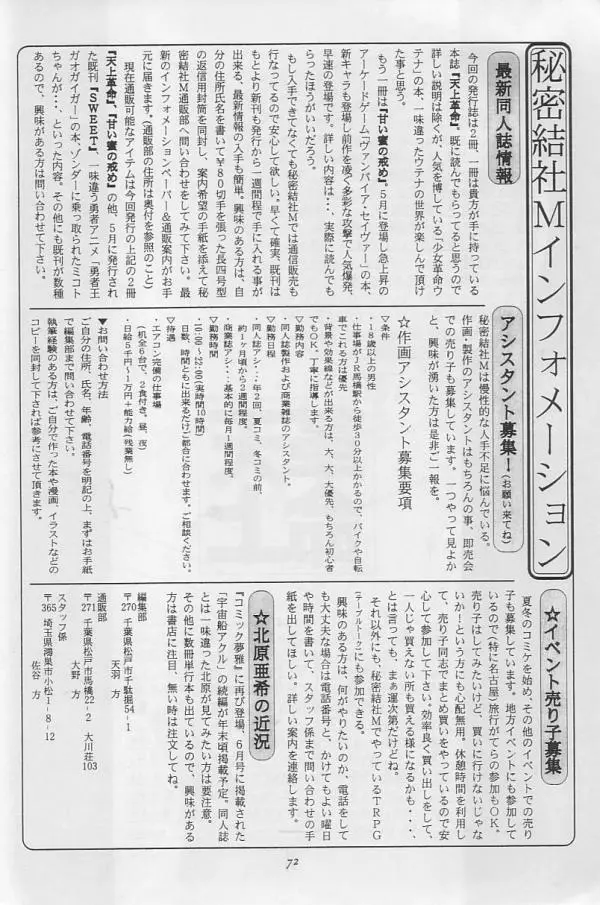 秘密結社Mインフォメーション
最新同人誌情報
今回の発行誌は2冊、一冊は貴方が手に持っている
本誌『天上革命』、既に読んでもらってると思うので
詳しい説明は除くが、人気を博している「少女革命ウ
テナ」の本、一味違ったウテナの世界が楽しんで頂け
た事と思う。
もう一冊は『甘い蜜の戒め』。5月に登場し急上昇の
アーケードゲーム「ヴァンパイア・セイヴァー」の本、
新キャラも登場し前作を凌ぐ多彩な攻撃で人気爆発、
早速の登場です。詳しい内容は・・、実際に読んでも
らったほうがいいだろう。
もし入手できてなくても秘密結社Mでは通信販売も
行なってるので安心して欲しい。早くて確実、既刊は
もとより新刊も発行から一週間程で手に入れる事が
出来る、最新情報の入手も簡単。興味のある方は、自
分の住所氏名を書いて¥80切手を張った長四号型
の返信用封筒を同封し、案内希望の手紙を添えて秘
密結社M通販部へ問い合わせをしてみて下さい。最
新のインフォメーションペーパー&通販案内がお手
元に届きます。(通販部の住所は奥付を参照のこと)
現在通販可能なアイテムは今回発行の上記の2冊
『天上革命』、『甘い蜜の戒め』の他、5月に発行され
た既刊『SWEET』、一味違う勇者アニメ「勇者王
ガオガイガー」の本。ゾンダーに乗っ取られたミコト
ちゃんが・・、といった内容。その他にも既刊が数種
あるので、興味がある方は問い合わせて下さい。
アシスタント募集!(お願い来てね)
秘密結社Mは慢性的な人手不足に悩んでいる。
作画・製作のアシスタントはもちろんの事、即売会
での売り子も募集しています。一つやって見よか
と、興味が湧いた方は是非ご一報を。
☆作画アシスタント募集要項
▼条件
・18歳以上の男性
・仕事場がJR馬橋駅から徒歩30分以上かかるので、バイクや自転
車でこれる方は優先
・背景や効果線などが出来る方は、大、大、大優先。もちろん初心者
でもOK、丁寧に指導します。
▼勤務内容
・同人誌製作および商業雑誌のアシスタント。
▼勤務日程
・同人誌アシ・・・年2回、夏コミ、冬コミの前、
約1ヶ月頃から2週間程度。
・商業誌アシ・・・基本的に毎月1週間程度。
▼勤務時間
・10:00〜22:00(実時間10時間)
日数、時間ともに出来るだけご都合に合わせます。ご相談ください。
▼待遇
・エアコン完備の仕事場
(机全6台で、2食付き。昼、夜)
・日給5千円〜1万円+能力給(残業無し)
▼お問い合わせ方法
ご自分の住所、氏名、年齢、電話番号を明記の上、まずはお手紙
で編集部まで問い合わせて下さい。
執筆経験のある方は、ご自分で作った本や漫画、イラストなどの
コピーを同封して下されば参考にさせて頂きます。
☆イベント売り子募集
夏冬のコミケを始め、その他のイベントでの売り
子も募集しています。地方イベントにも参加して
いるので(特に名古屋)旅行がてらの参加もOK。
売り子はしてみたいけど、買いに行けないじゃな
いか!という方にも心配無用。休憩時間を利用し
て、売り子同志でまとめ買いをやっているので安
心して参加して下さい。効率良く買い出しをして、
一人じゃ買えない所も買える様になるかも・・・、
とは言っても、まぁ運次第だけどね。
それ以外にも、秘密結社MでやっているTRPG
(テーブルトーク)にも参加できる。
興味のある方は、何がやりたいのか、電話をして
も大丈夫な場合は電話番号と、かけてもよい曜日
や時間を書いて、スタッフ係まで問い合わせの手
紙を出してほしい。詳しい案内を連絡します。
☆北原亜希の近況
『コミック夢雅』に再び登場、6月号に掲載された
「宇宙船アクル」の続編が年末頃掲載予定。同人誌
とは一味違った北原が見てみたい方は要注意。
その他に数冊単行本も出ているので、興味がある
方は書店に注目、無い時は注文してね。
編集部
〒270 千葉県松戸市千駄堀54-1
天羽 方
通販部
〒271 千葉県松戸市馬橋22-2 大川荘103
大野 方
スタッフ係
〒365 埼玉県鴻巣市小松1-8-12
佐谷 方
72